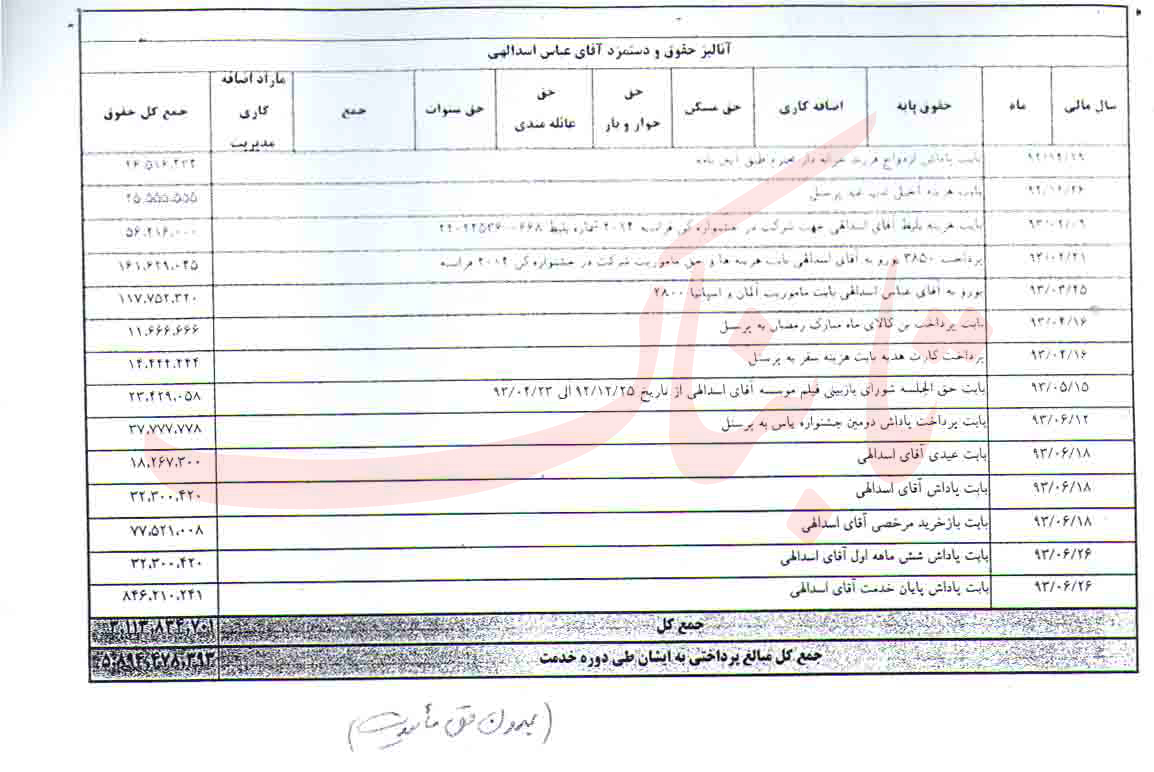 آنالیز حقوق و دستمزد آقای عباس اسدالهی
سال مالی ماه حقوق پایه اضافه کاری حق مسکن حق خوار و بار حق عائله مندی حق سنوات جمع مازاد اضافه کاری مدیریت جمع کل حقوق
۹۲/۱۲/۱۹ بابت پاداش ازدواج فرزند خزانه دار محترم طبق
۹۲/۱۲/۲۶ بابت هزینه آجیل شب عید پرسنل ۲۵،۵۵۵،۵۵۵
۹۳/۰۲/۰۹ بابت هزینه بلیط آقای اسدالهی جهت شرکت در جشنواره کن فرانسه ۲۰۱۴ شماره بلیط ۵۶،۲۱۶،۰۰۰
۹۳/۰۲/۲۱ پرداخت ۳۸۵۰ یورو به آقای اسدالهی بابت هزینه ها و حق ماموریت شرکت در جشنواره کن ۲۰۱۴ فرانسه ۱۶۱،۶۲۹،۰۲۵
۹۳/۰۳/۲۵ یورو به آقای عباس اسدالهی بابت ماموریت آلمان و اسپانیا ۲۸۰۰ ۱۱۷،۷۵۲،۳۲۰
۹۳/۰۴/۱۶ بابت پرداخت بن کالای ماه مبارک رمضان به پرسنل ۱۱،۶۶۶،۶۶۶
۹۳/۰۴/۱۶ پرداخت کارت هدیه بابت هزینه سفر به پرسنل ۱۴،۴۴۴،۲۴۴
۹۳/۰۵/۱۵ بابت حق الجلسه شورای بازبینی فیلم موسسه آقای اسدالهی از تاریخ ۹۲/۱۲/۲۵ الی ۹۳/۰۴/۲۳ ۲۳،۴۲۹،۰۵۸
۹۳/۰۶/۱۲ بابت پرداخت پاداش دومین جشنواره یاس به پرسنل ۳۷،۷۷۷،۷۷۸
۹۳/۰۶/۱۸ بابت عیدی آقای اسدالهی ۱۸،۲۶۷،۳۰۰
۹۳/۰۶/۱۸ بابت پاداش آقای اسدالهی ۳۲،۳۰۰،۴۲۰
۹۳/۰۶/۱۸ بابت بازخرید مرخصی آقای اسدالهی ۷۷،۵۲۱،۰۰۸
۹۳/۰۶/۲۶ بابت پاداش شش ماهه اول آقای اسدالهی ۳۲،۳۰۰،۴۲۰
۹۳/۰۶/۲۶ بابت پاداش پایان خدمت آقای اسدالهی ۸۴۶،۲۱۰،۲۴۱
جمع کل ۳،۱۱۳،۸۳۴،۷۰۱
جمع کل مبالغ پرداختی به ایشان طی دوره خدمت ۵،۸۹۴،۴۷۸،۳۹۳
(بدون حق مأموریت)
تابناک